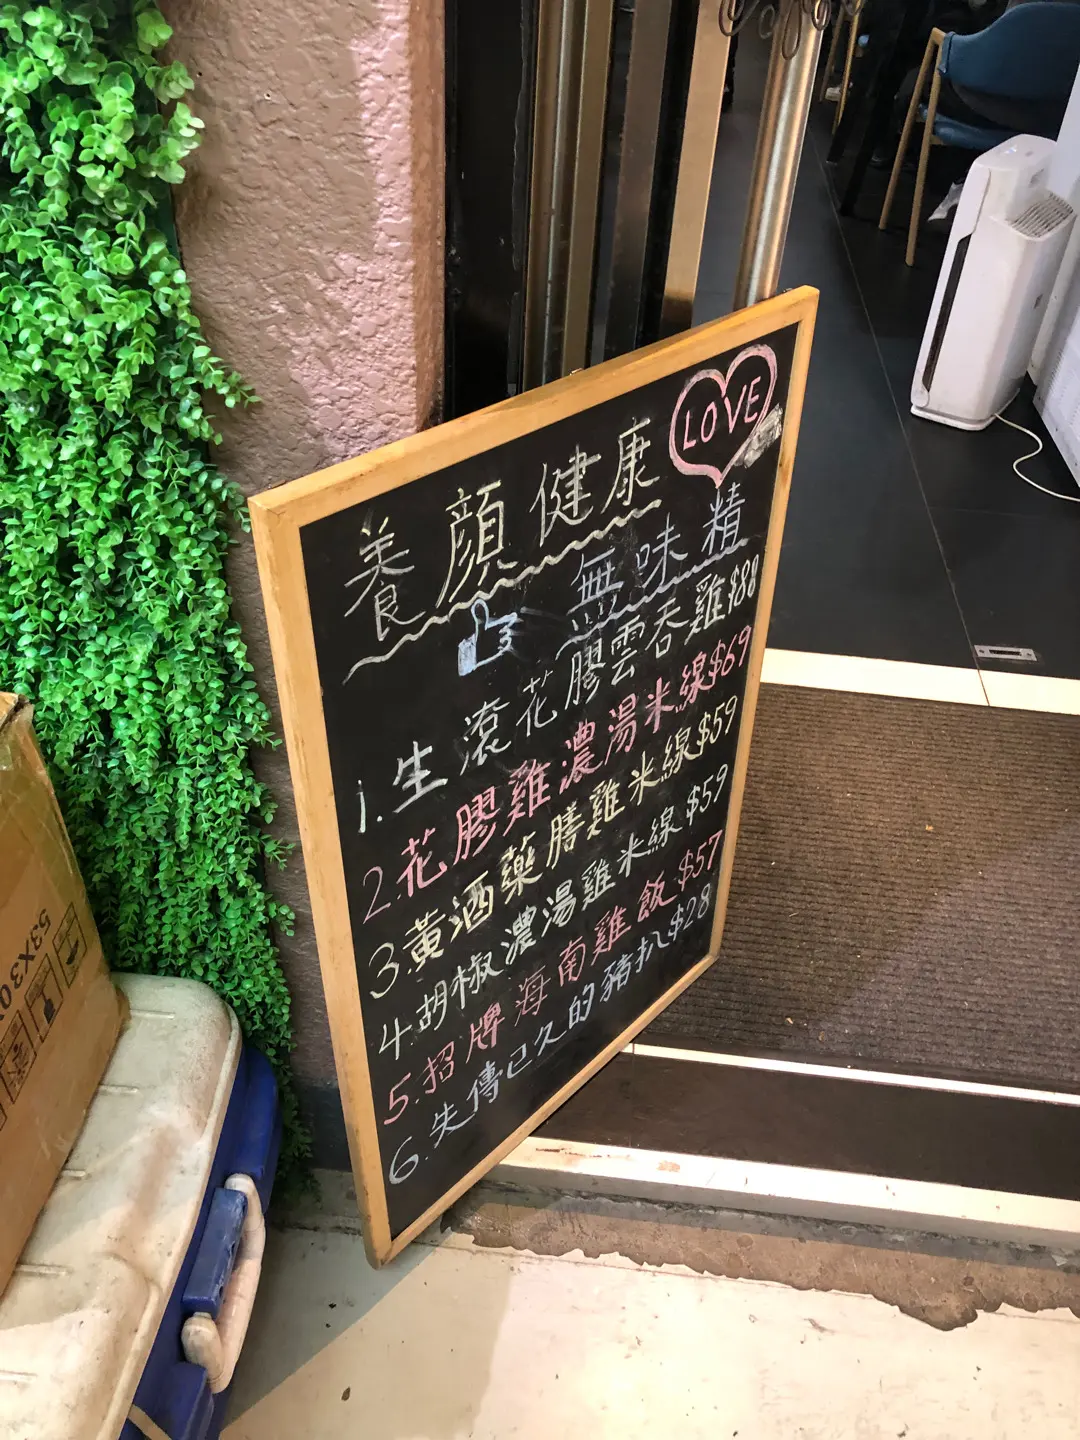 LOVE
養顏健康
無味精
1.生滾花膠雲吞雞$88
2.花膠雞濃湯米線$69
3.黃酒藥膳雞米線$59
4.胡椒濃湯雞米線$59
5.招牌海南雞飯$57
6.失傳已久的豬扒$28